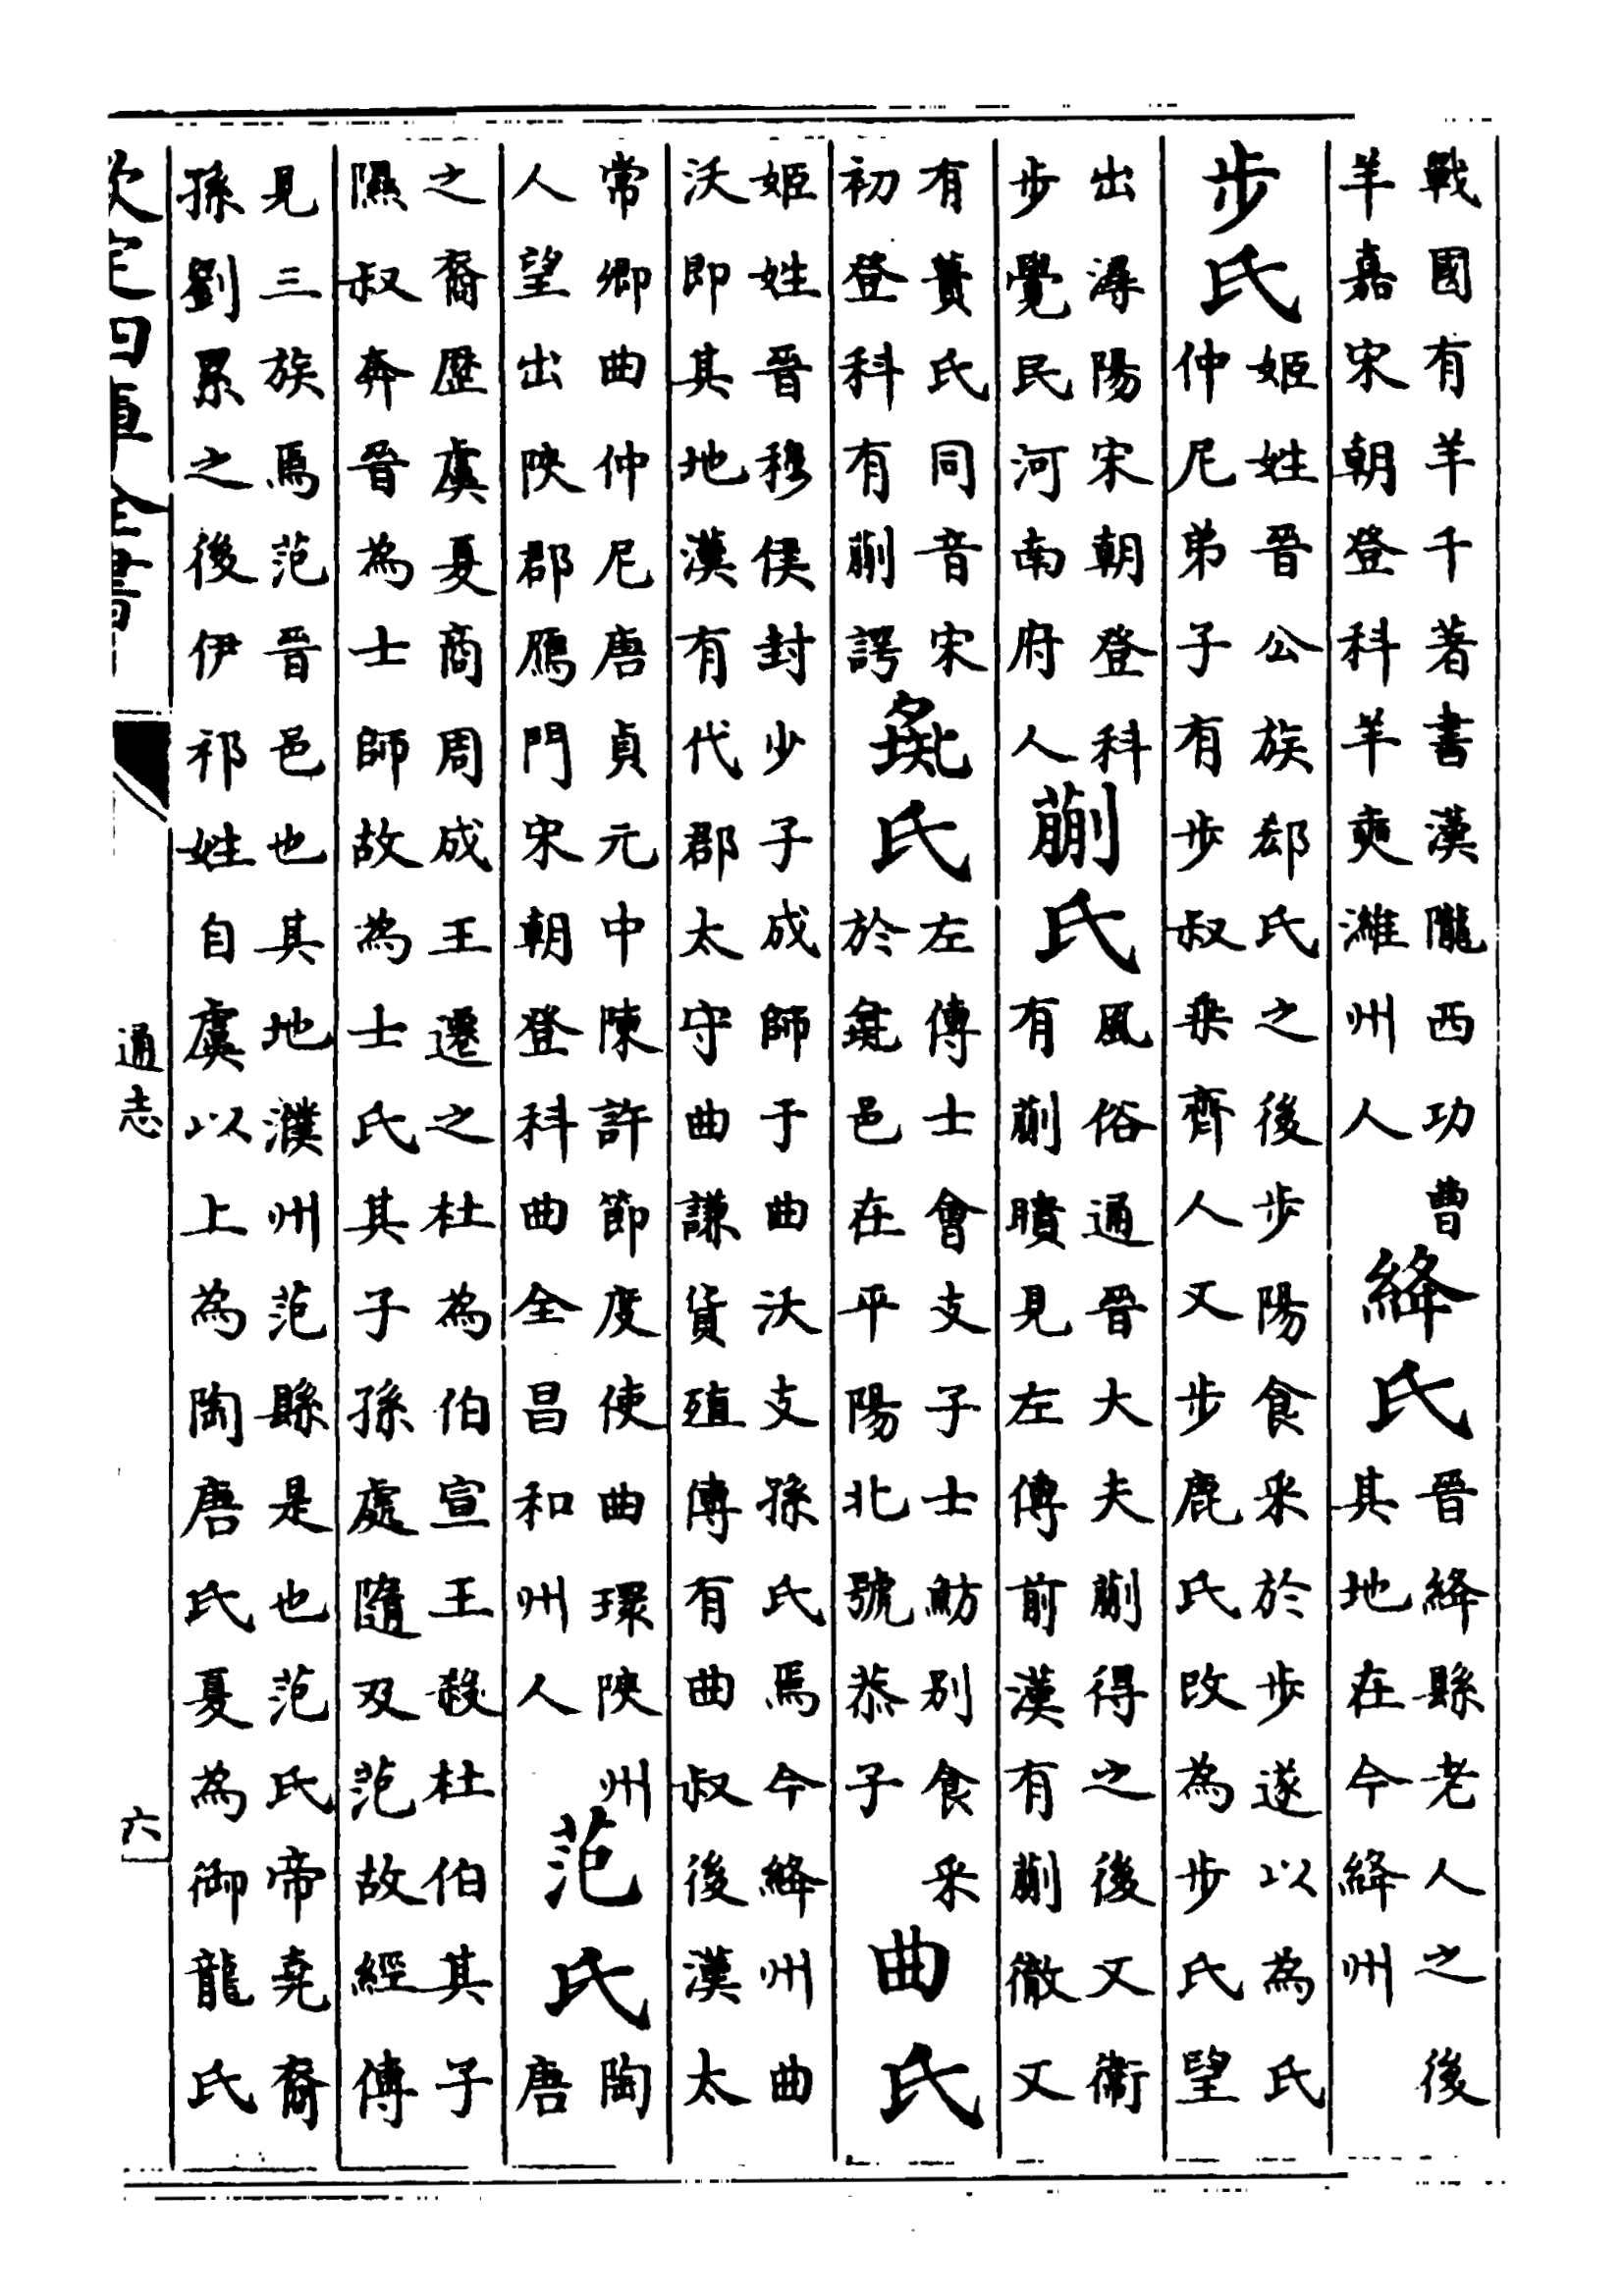 戰國有羊千著書漢隴西功曹
羊嘉宋朝登科羊奭濰州人
絳氏
晉絳縣老人之後
其地在今絳州
步氏
姬姓晉公族郄氏之後步陽食采於步遂以為氏
仲尼弟子有步叔乗齊人又步鹿氏改為步氏望
出潯陽宋朝登科
步覺民河南府人
蒯氏
風俗通晉大夫蒯得之後又衛
有蒯聵見左傳前漢有蒯徹又
有蕢氏同音宋
初登科有蒯諤
彘氏
左傳士會支子士魴别食采
於彘邑在平陽北號恭子
曲氏
姬姓晉穆侯封少子成師于曲沃支孫氏焉今絳州曲
沃即其地漢有代郡太守曲謙貨殖傳有曲叔後漢太
常卿曲仲尼唐貞元中陳許節度使曲環陜州
人望出陜郡鴈門宋朝登科曲全昌和州人
范氏
陶
唐
之裔歴虞夏商周成王遷之杜為伯宣王殺杜伯其子
隰叔奔晉為士師故為士氏其子孫處隨及范故經傳
見三族焉范晉邑也其地濮州范縣是也范氏帝堯裔
孫劉累之後伊祁姓自虞以上為陶唐氏夏為御龍氏
欽定四庫全書
通志
六